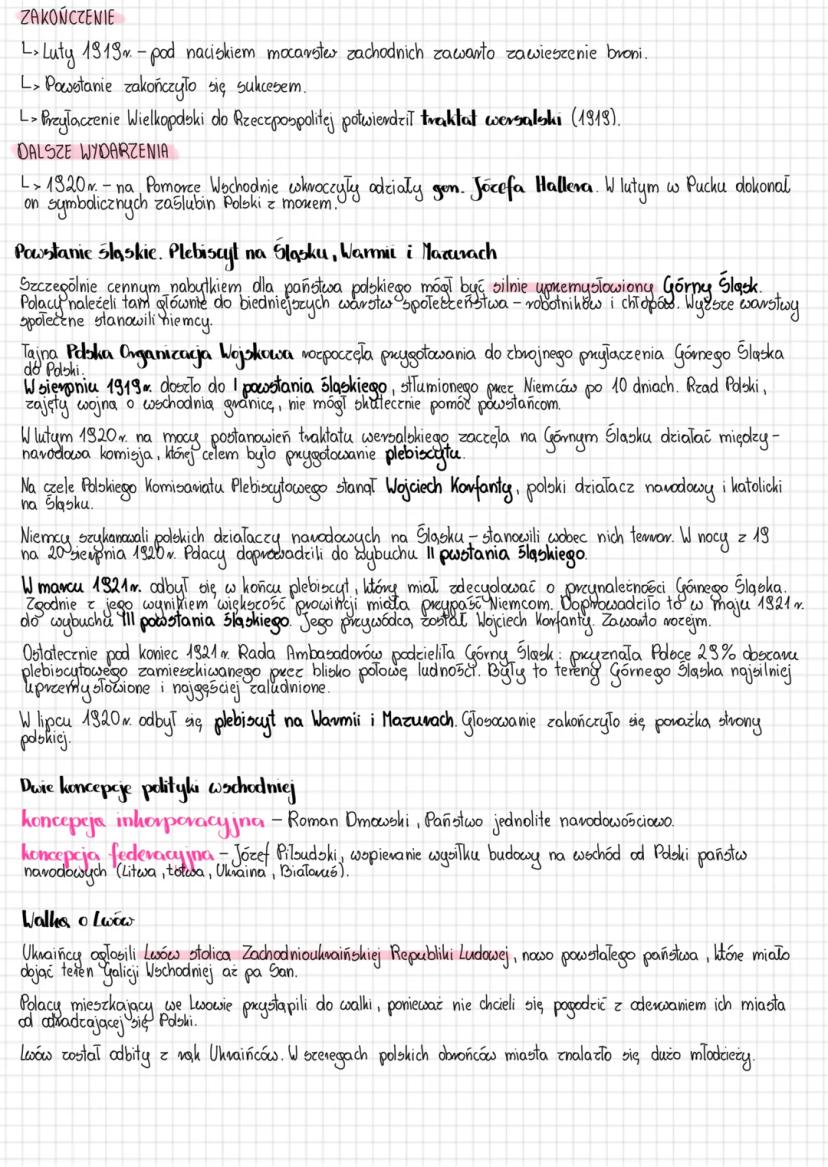 ZAKOŃCZENIE
↳ Luty 1919r. – pod naciskiem mocarstw zachodnich zawarto zawieszenie broni.
↳ Powstanie zakończyło się sukcesem.
↳ Przyłączenie Wielkopolski do Rzeczpospolitej potwierdził traktat wersalski (1919).
DALSZE WYDARZENIA
↳ 1920r. – na Pomorze Wschodnie wkroczyły odziały gen. Józefa Hallera. W lutym w Pucku dokonał
on symbolicznych zaślubin Polski z morzem.
Powstanie śląskie. Plebiscyt na Śląsku, Warmii i Mazurach
Szczególnie cennym nabytkiem dla państwa polskiego mógł być silnie uprzemysłowiony Górny Śląsk.
Polacy należeli tam głównie do biedniejszych warstw społeczeństwa – robotników i chłopów. Wyższe warstwy
społeczne stanowili niemcy.
Tajna Polska Organizacja Wojskowa rozpoczęła przygotowania do zbrojnego przyłączenia Górnego Śląska
do Polski.
W sierpniu 1919r. doszło do I powstania śląskiego, stłumionego przez Niemców po 10 dniach. Rząd Polski,
zajęty wojną o wschodnią granicę, nie mógł skutecznie pomóc powstańcom.
W lutym 1920r. na mocy postanowień traktatu wersalskiego zaczęła na Górnym Śląsku działać między-
narodowa komisja, której celem było przygotowanie plebiscytu.
Na czele Polskiego Komisariatu Plebiscytowego stanął Wojciech Korfanty, polski działacz narodowy i katolicki
na Śląsku.
Niemcy szykanowali polskich działaczy narodowych na Śląsku – stanowili wobec nich terror. W nocy z 19
na 20 sierpnia 1920r. Polacy doprowadzili do wybuchu II powstania śląskiego.
W marcu 1921r. odbył się w końcu plebiscyt, który miał zdecydować o przynależności Górnego Śląska.
Zgodnie z jego wynikiem większość prowincji miała przypaść Niemcom. Doprowadziło to w maju 1921r.
do wybuchu III powstania śląskiego. Jego przywódcą został Wojciech Korfanty. Zawarto rozejm.
Ostatecznie pod koniec 1921r. Rada Ambasadorów podzieliła Górny Śląsk: przyznała Polsce 29% obszaru
plebiscytowego zamieszkiwanego przez blisko połowę ludności. Były to tereny Górnego Śląska najsilniej
uprzemysłowione i najgęściej zaludnione.
W lipcu 1920r. odbył się plebiscyt na Warmii i Mazurach. Głosowanie zakończyło się porażką strony
polskiej.
Dwie koncepcje polityki wschodniej
koncepcja inkorporacyjna – Roman Dmowski, Państwo jednolite narodowościowo.
koncepcja federacyjna – Józef Piłsudski, wspieranie wysiłku budowy na wschód od Polski państw
narodowych (Litwa, Łotwa, Ukraina, Białoruś).
Walka o Lwów
Ukraińcy ogłosili Lwów stolicą Zachodnioukraińskiej Republiki Ludowej, nowo powstałego państwa, które miało
dojąć teren Galicji Wschodniej aż pa San.
Polacy mieszkający we Lwowie przystąpili do walki, ponieważ nie chcieli się pogodzić z oderwaniem ich miasta
od odradzającej się Polski.
Lwów został odbity z rąk Ukraińców. W szeregach polskich obrońców miasta znalazło się dużo młodzieży.